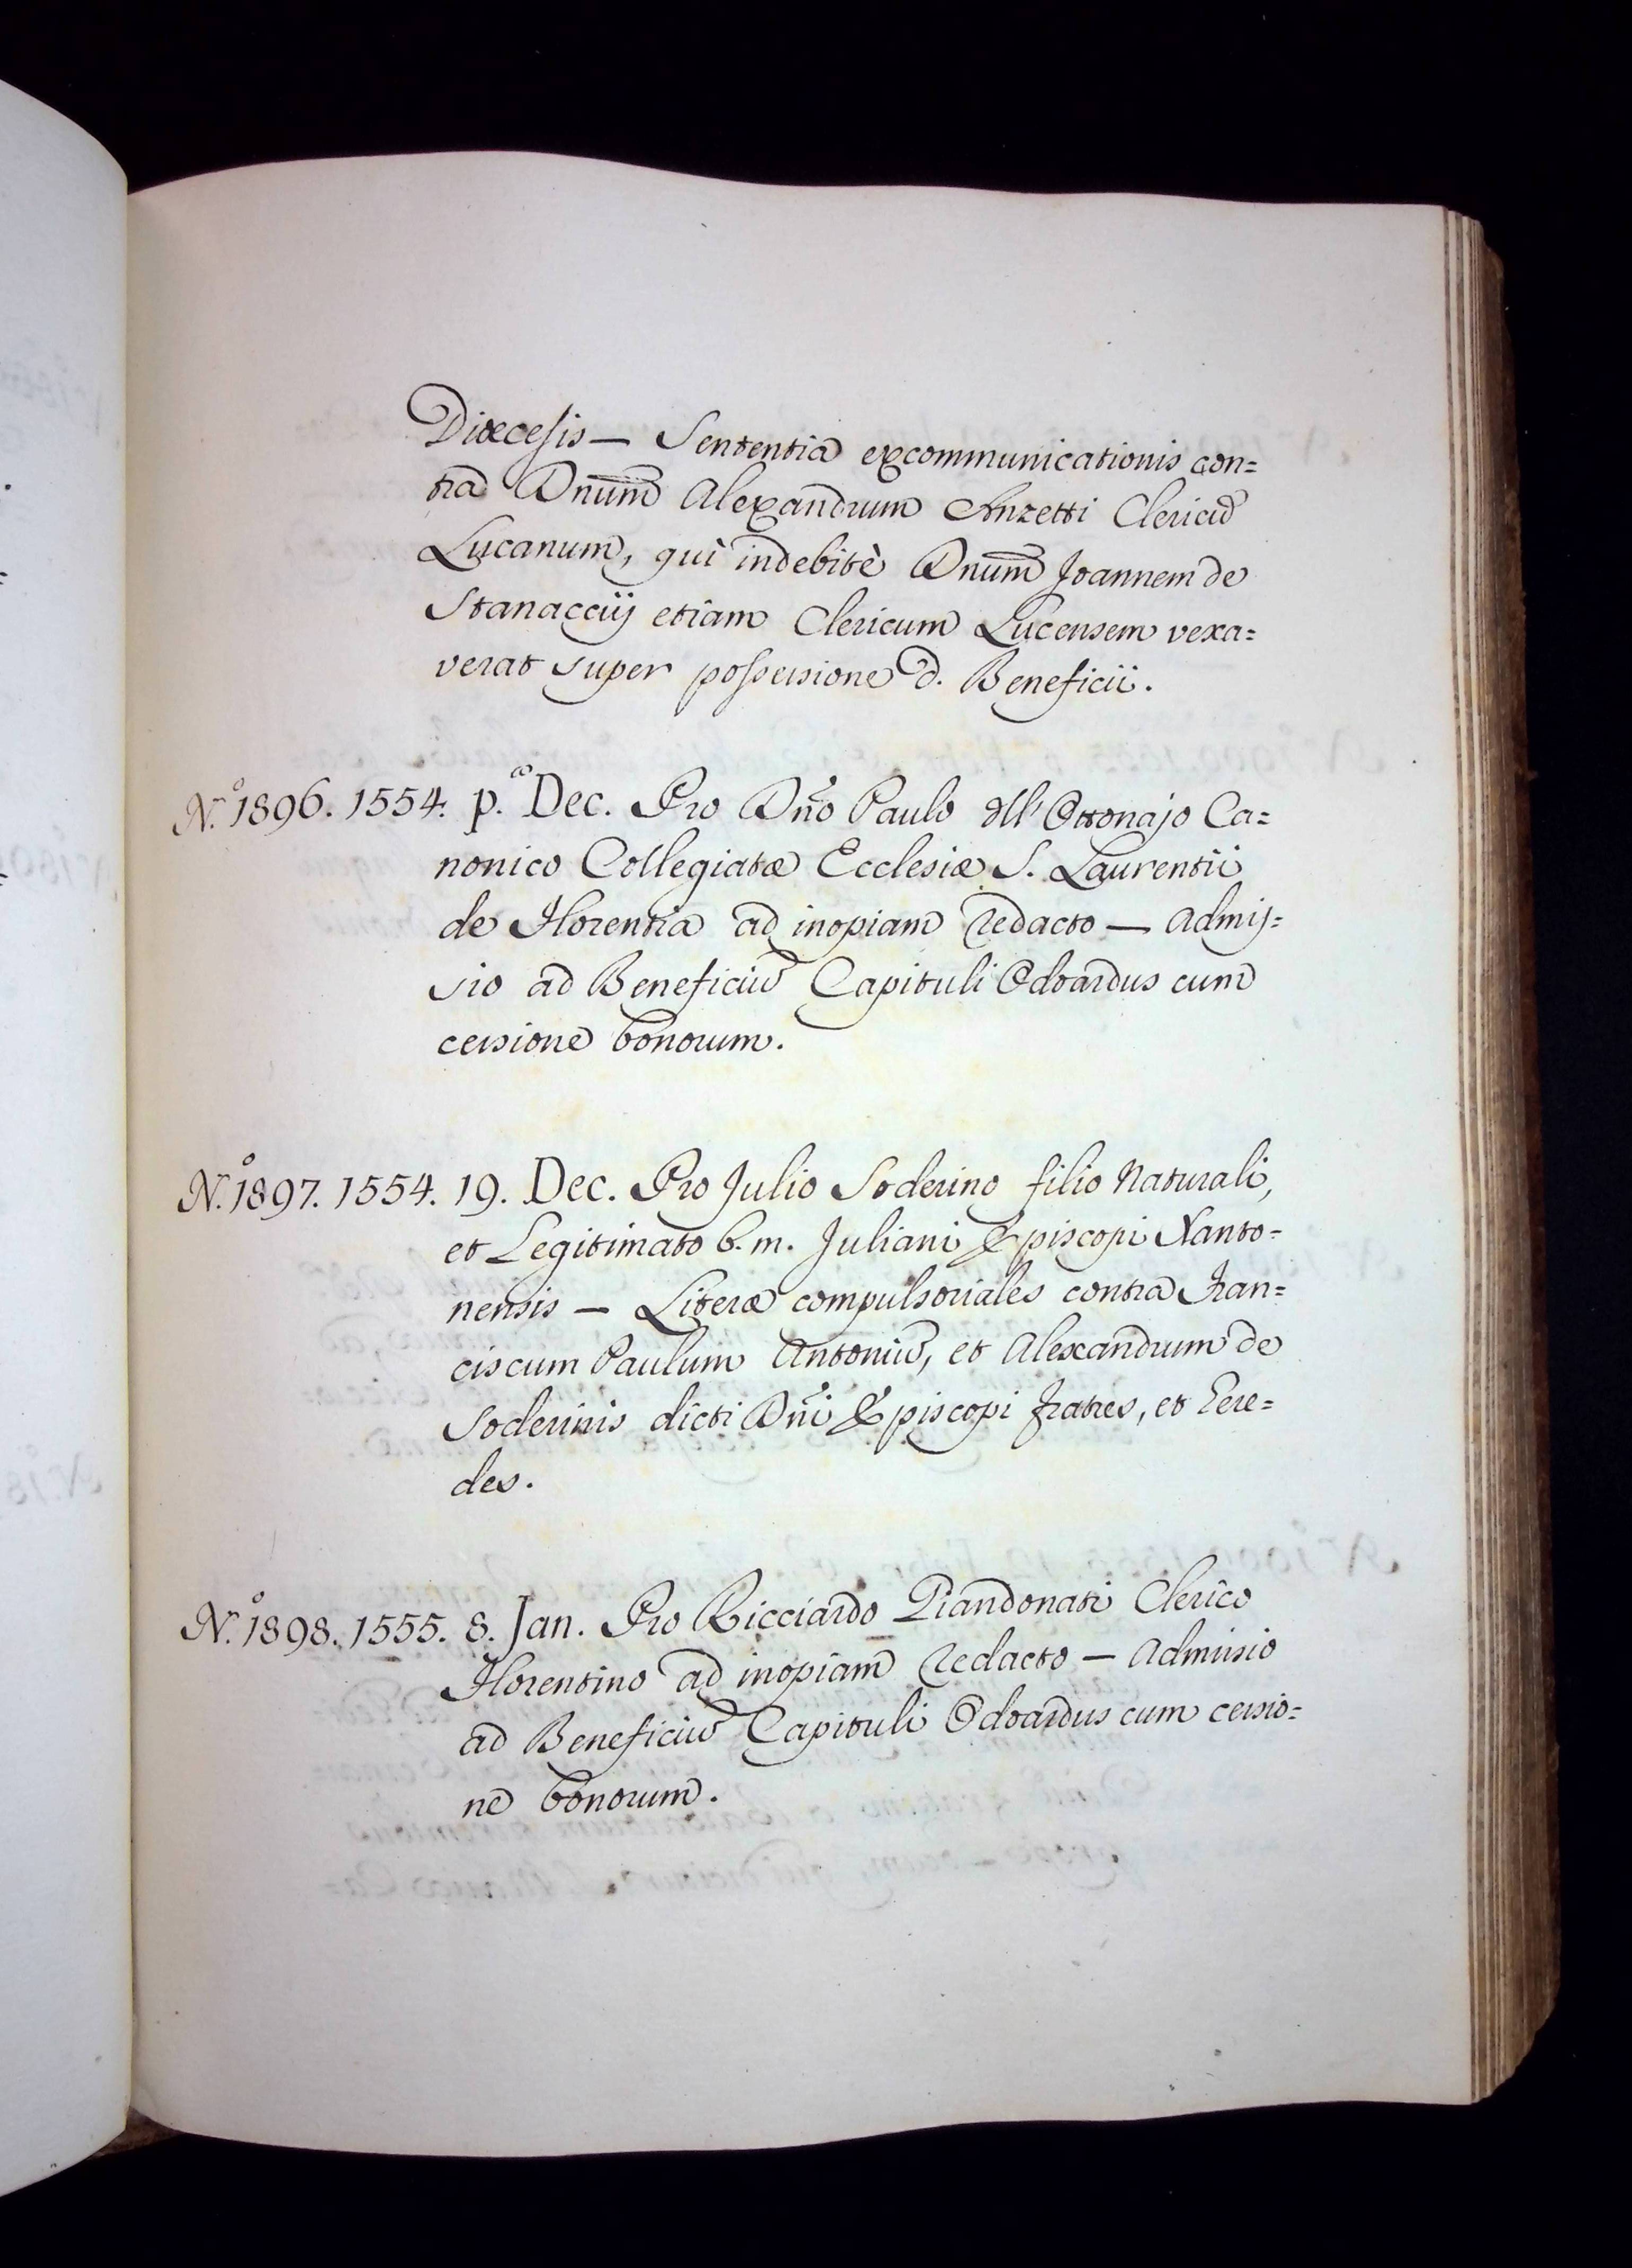 Diœcesis — Sententia excommunicationis con=
tra Dnum̅ Alexandrum Anzetti Clericũ
Lucanum, qui indebitè Dnum̅ Joannem de
Stanaccij etiam Clericum Lucensem vexa=
verat super possessione d. Beneficii.
N.º 1896. 1554. p.ª Dec. Pro Dño Paulo dll' Ottonajo Ca=
nonico Collegiatæ Ecclesiæ S. Laurentii
de Florentia ad inopiam redacto — Admis=
sio ad Beneficiũ Capituli Odoardus cum
cessione bonorum.
N.º 1897. 1554. 19. Dec. Pro Julio Soderino filio Naturali,
et Legitimato b. m. Juliani Episcopi Xanto=
nensis — Literæ compulsoriales contra Fran=
ciscum Paulum Antoniũ, et Alexandrum de
Soderinis dicti Dñi Episcopi fratres, et Ere=
des.
N.º 1898. 1555. 8. Jan. Pro Ricciardo Piandonati Clerico
Florentino ad inopiam redacto — Admissio
ad Beneficiũ Capituli Odoardus cum cessio=
ne bonorum.